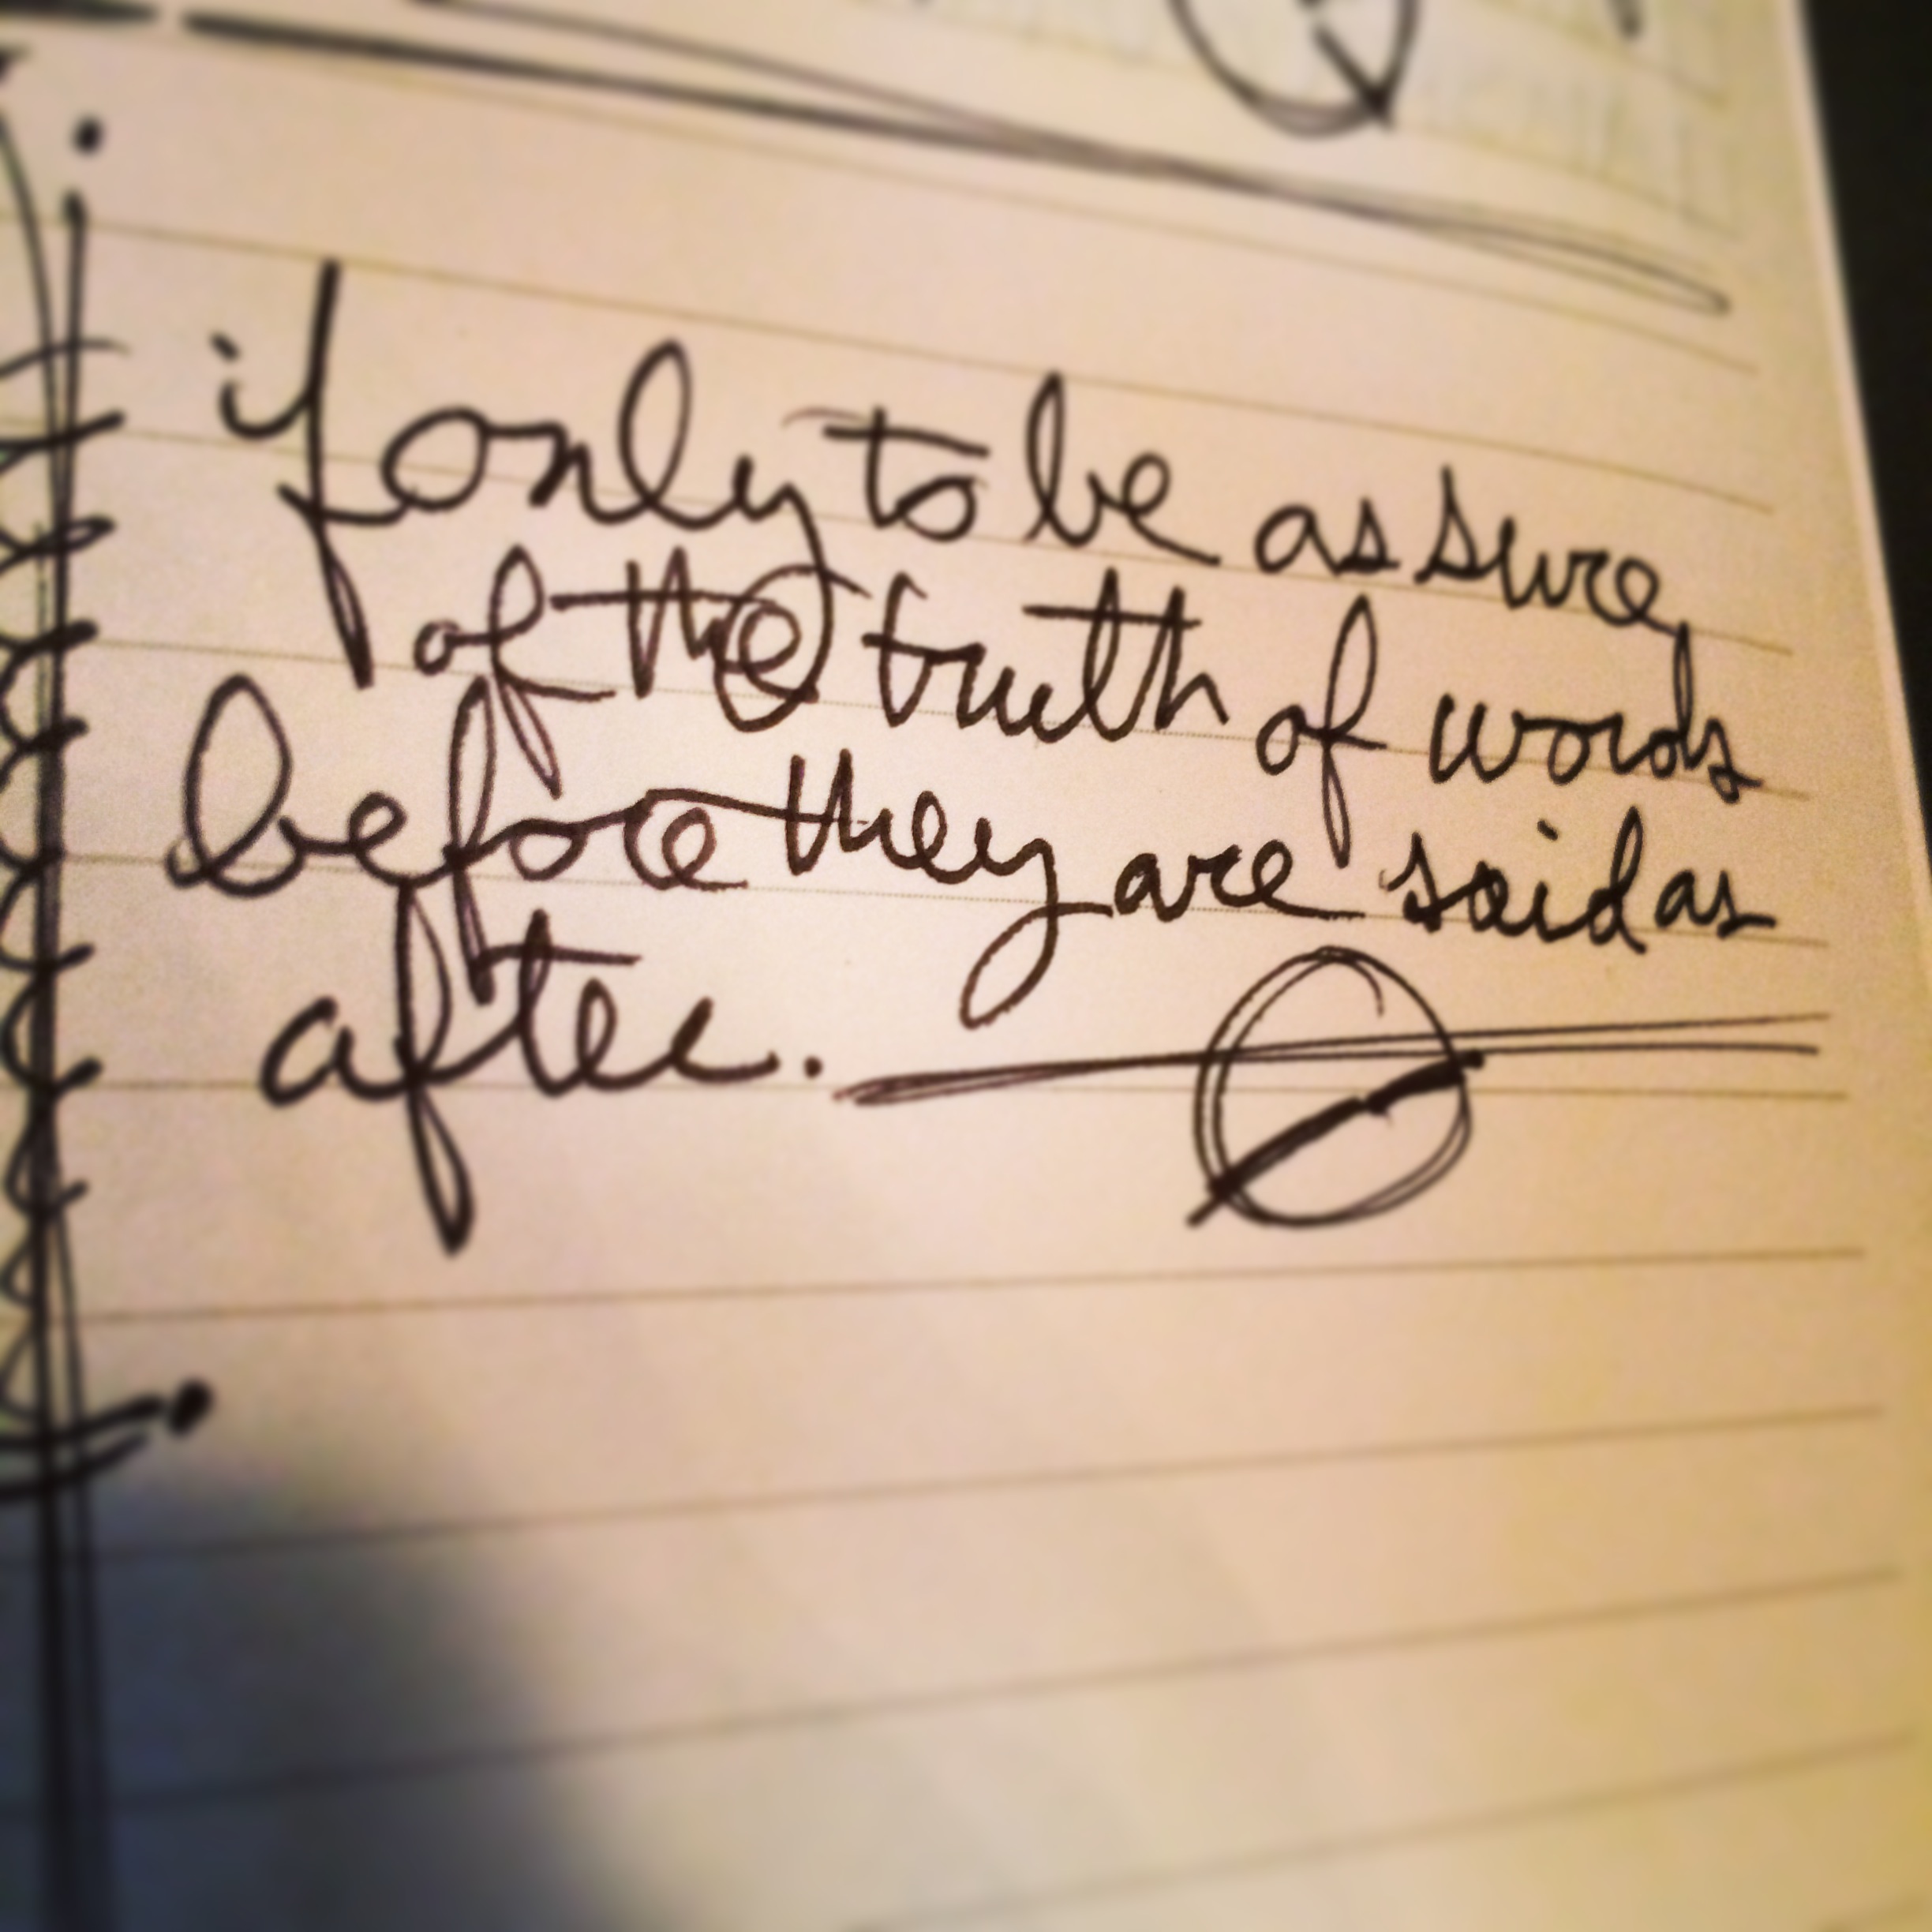 if only to be as sure
of the truth of words
before they are said as
after.